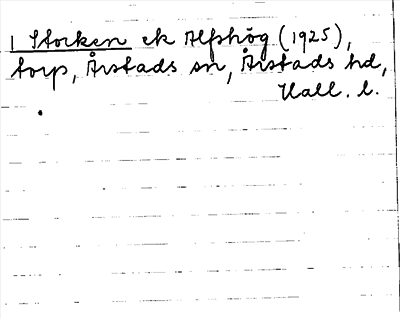 1 Stocken ek Alfshög (1925),
torp, Årstads sn, Årstads hd,
Hall. l.